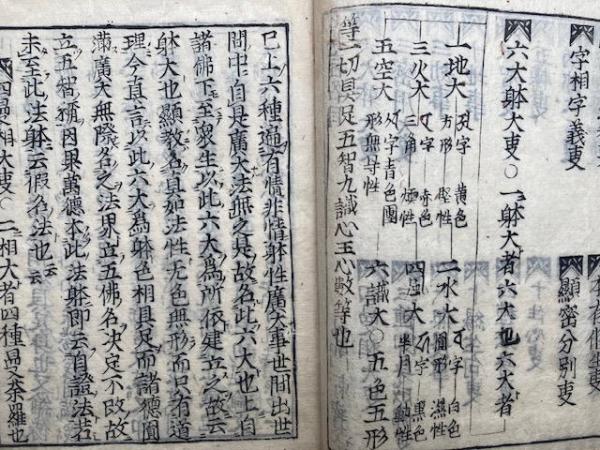 本有修生叓
顯密分別叓
字相字義叓
六大躰大叓○一躰大者六大也六大者
一地大 字 黄色 方形 堅性 二水大 字 白色 圓形 濕性
三火大 字 赤色 三角 煖性 四風大 字 黒色 半月 動性
五空大 字青色團形無导性 六識大○五色五形
等一切具足五智九識心王心數等也
已上六種遍有情非情躰性廣大事世間出世
間中自是廣大法無之是故名此六大也上自
諸佛下至衆生以此六大為所依建立之故云
躰大也顯教名真如法性无色無形而只有道
理今真言以此六大為躰色相具足而諸德圓
滿廣大無際名之法界立五佛名决定不改故
立五智称因果萬德本此法躰即云自證法若
未至此法躰云假名法也云云
四曼相大叓○二相大者四種曼荼羅也